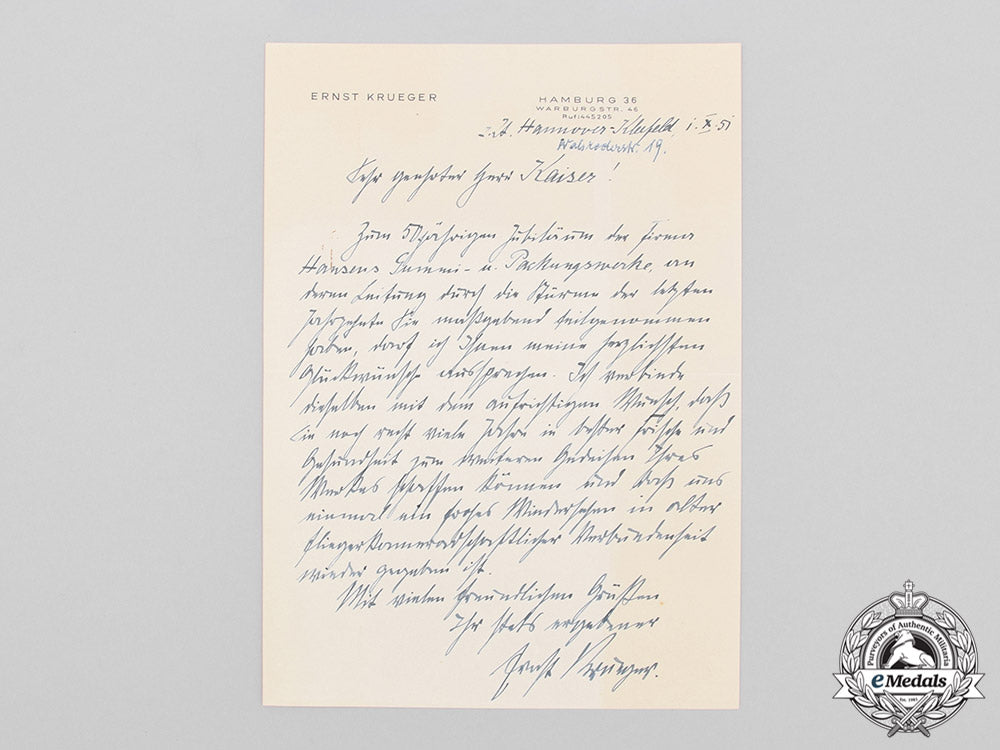 ERNST KRUEGER
HAMBURG 36
WARBURGSTR. 46
Ruf: 445205
z.Zt. Hannover-Kleefeld, 1.X.51
Walsroderstr. 19.
Sehr geehrter Herr Kaiser!
Zum 50jährigen Jubiläum der Firma
Hansens Gummi- u. Packungswerke, an
deren Leitung durch die Stürme der letzten
Jahrzehnte Sie maßgebend teilgenommen
haben, darf ich Ihnen meine herzlichsten
Glückwünsche aussprechen. Ich verbinde
dieselben mit dem aufrichtigen Wunsch, daß
Sie noch recht viele Jahre in bester Frische und
Gesundheit zum weiteren Gedeihen Ihres
Werkes schaffen können und daß uns
einmal ein frohes Wiedersehen in alter
fliegerkameradschaftlicher Verbundenheit
wieder gegeben ist.
Mit vielen freundlichen Grüßen
Ihr stets ergebener
Ernst Krueger.
Purveyors of Authentic Militaria
eMedals
Est. 1981